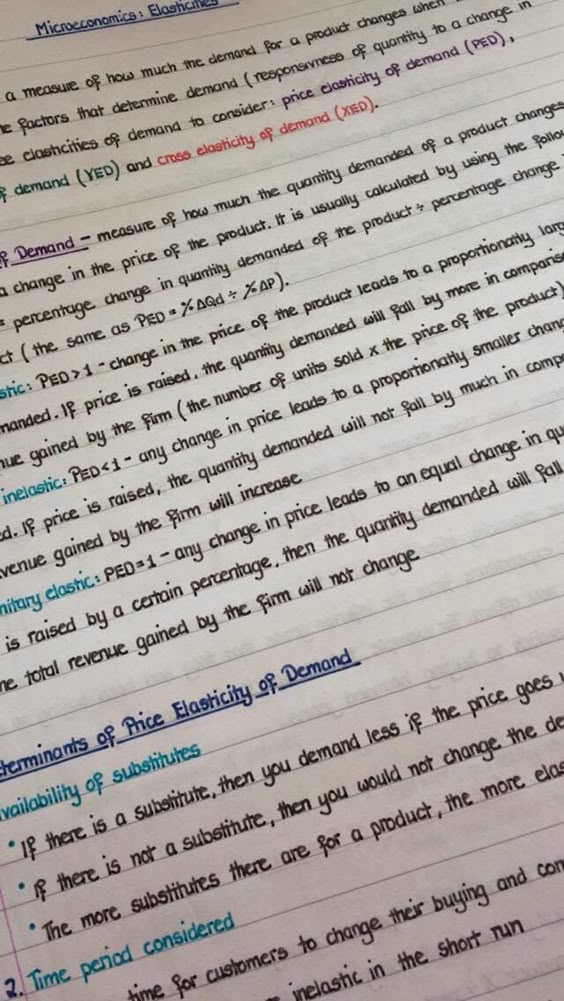 Microeconomics: Elasticities
a measure of how much the demand for a product changes when
factors that determine demand (responsivness of quantity to a change in
elasticities of demand to consider: price elasticity of demand (PED),
demand (YED) and cross elasticity of demand (XED).
of Demand - measure of how much the quantity demanded of a product changes
a change in the price of the product. It is usually calculated by using the
= percentage change in quantity demanded of the product ÷ percentage change
(the same as PED = %ΔQd ÷ %ΔP).
PED > 1 - change in the price of the product leads to a proportionally
If price is raised, the quantity demanded will fall by more in
gained by the firm (the number of units sold x the price of the product)
inelastic: PED < 1 - any change in price leads to a proportionally smaller
If price is raised, the quantity demanded will not fall by much in
revenue gained by the firm will increase
elastic: PED = 1 - any change in price leads to an equal change in
is raised by a certain percentage, then the quantity demanded will fall
total revenue gained by the firm will not change.
Determinants of Price Elasticity of Demand
Availability of substitutes
• If there is a substitute, then you demand less if the price goes
• If there is not a substitute, then you would not change the
• The more substitutes there are for a product, the more
2. Time period considered
time for customers to change their buying and
inelastic in the short run